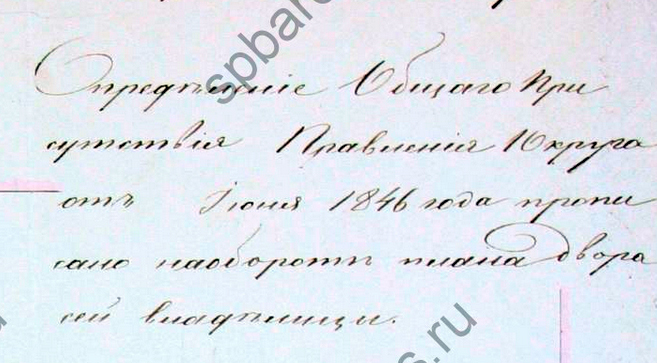 Опредѣленіе Общаго При
сутствія Правленія 1 Округа
отъ Іюня 1846 года пропи
сано наоборотъ плана двора
сей владѣлицы.